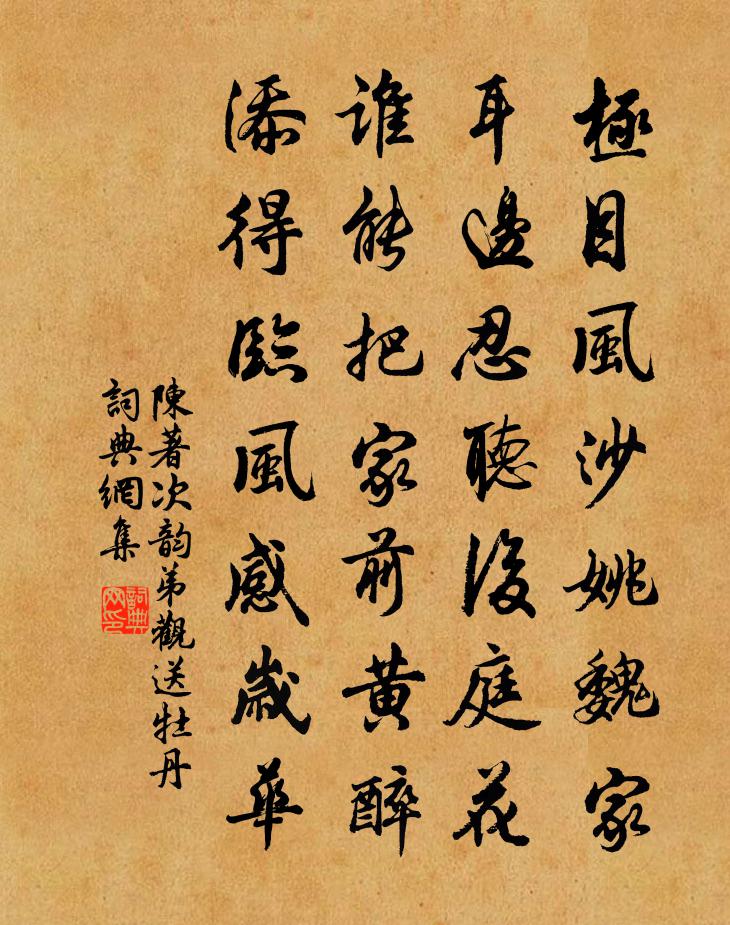 極目風沙姚魏家
耳邊忍聽後庭花
誰能把家前黄醉
添得臨風感歲華
陳著次韵弟觀送牡丹
詞典網集
詞典
网印